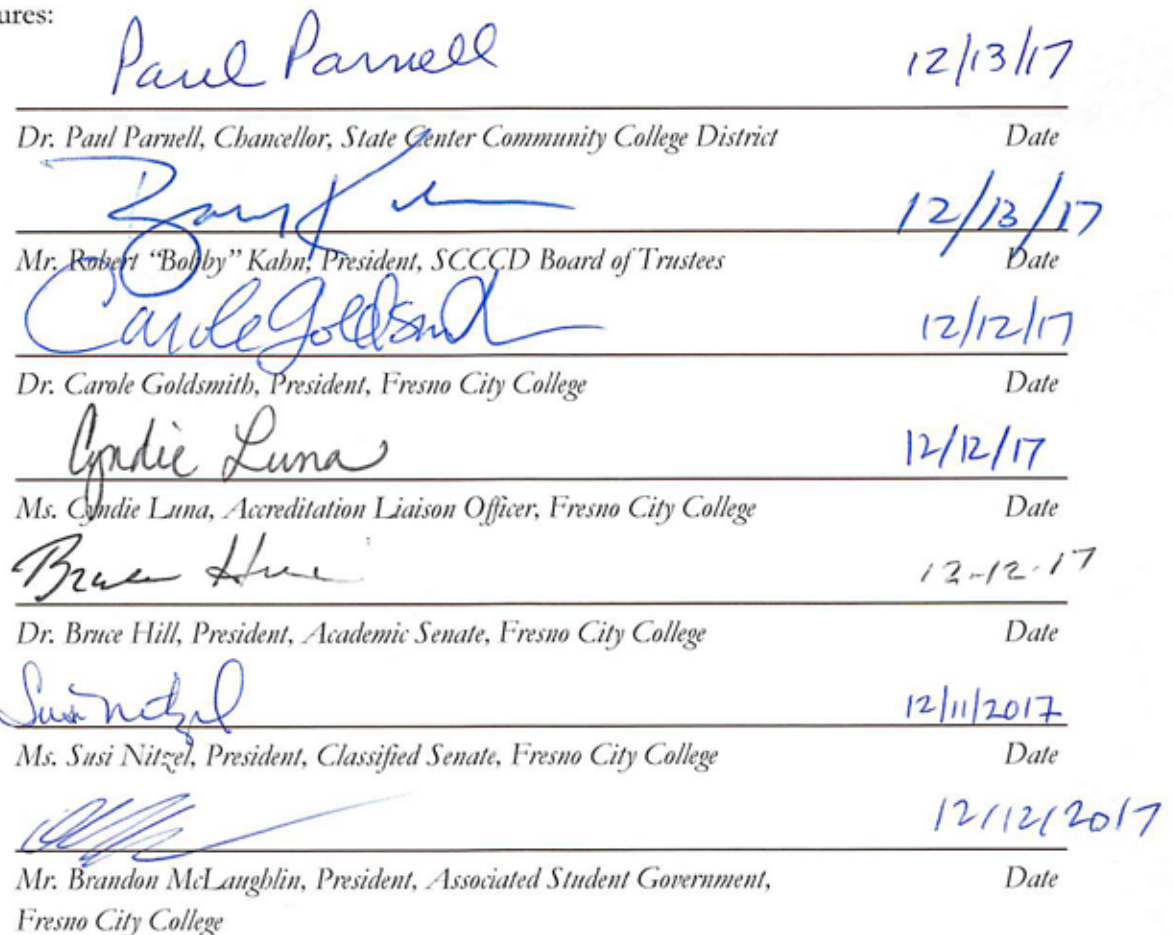 ures:
Paul Parnell 12/13/17
Dr. Paul Parnell, Chancellor, State Center Community College District Date
12/13/17
Mr. Robert “Bobby” Kahn, President, SCCCD Board of Trustees Date
Carole Goldsmith 12/12/17
Dr. Carole Goldsmith, President, Fresno City College Date
Cyndie Luna 12/12/17
Ms. Cyndie Luna, Accreditation Liaison Officer, Fresno City College Date
Bruce Hill 12-12-17
Dr. Bruce Hill, President, Academic Senate, Fresno City College Date
Susi Nitzel 12/11/2017
Ms. Susi Nitzel, President, Classified Senate, Fresno City College Date
12/12/2017
Mr. Brandon McLaughlin, President, Associated Student Government, Date
Fresno City College